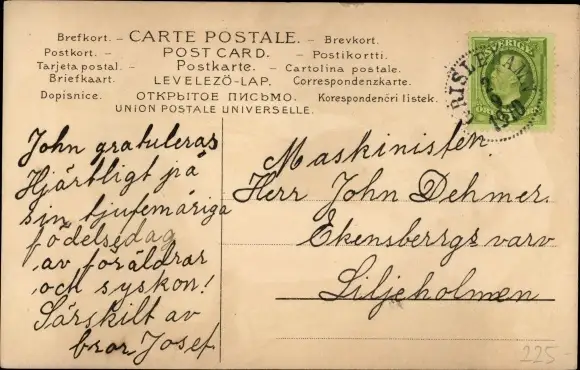 Brefkort. – CARTE POSTALE. – Brevkort.
Postkort. – POST CARD. – Postikortti.
Tarjeta postal. – Postkarte. – Cartolina postale.
Briefkaart. LEVELEZÖ-LAP. Correspondenzkarte.
Dopisnice. ОТКРЫТОЕ ПИСЬМО. Korespondenční lístek.
UNION POSTALE UNIVERSELLE.
SVERIGE
1910
John gratuleras
Hjärtligt på
sin tjufemåriga
födelsedag
av föräldrar
och syskon!
Särskilt av
bror Josef
Maskinisten
Herr John Dehmer.
Ekensberrgs varv
Liljeholmen
225-